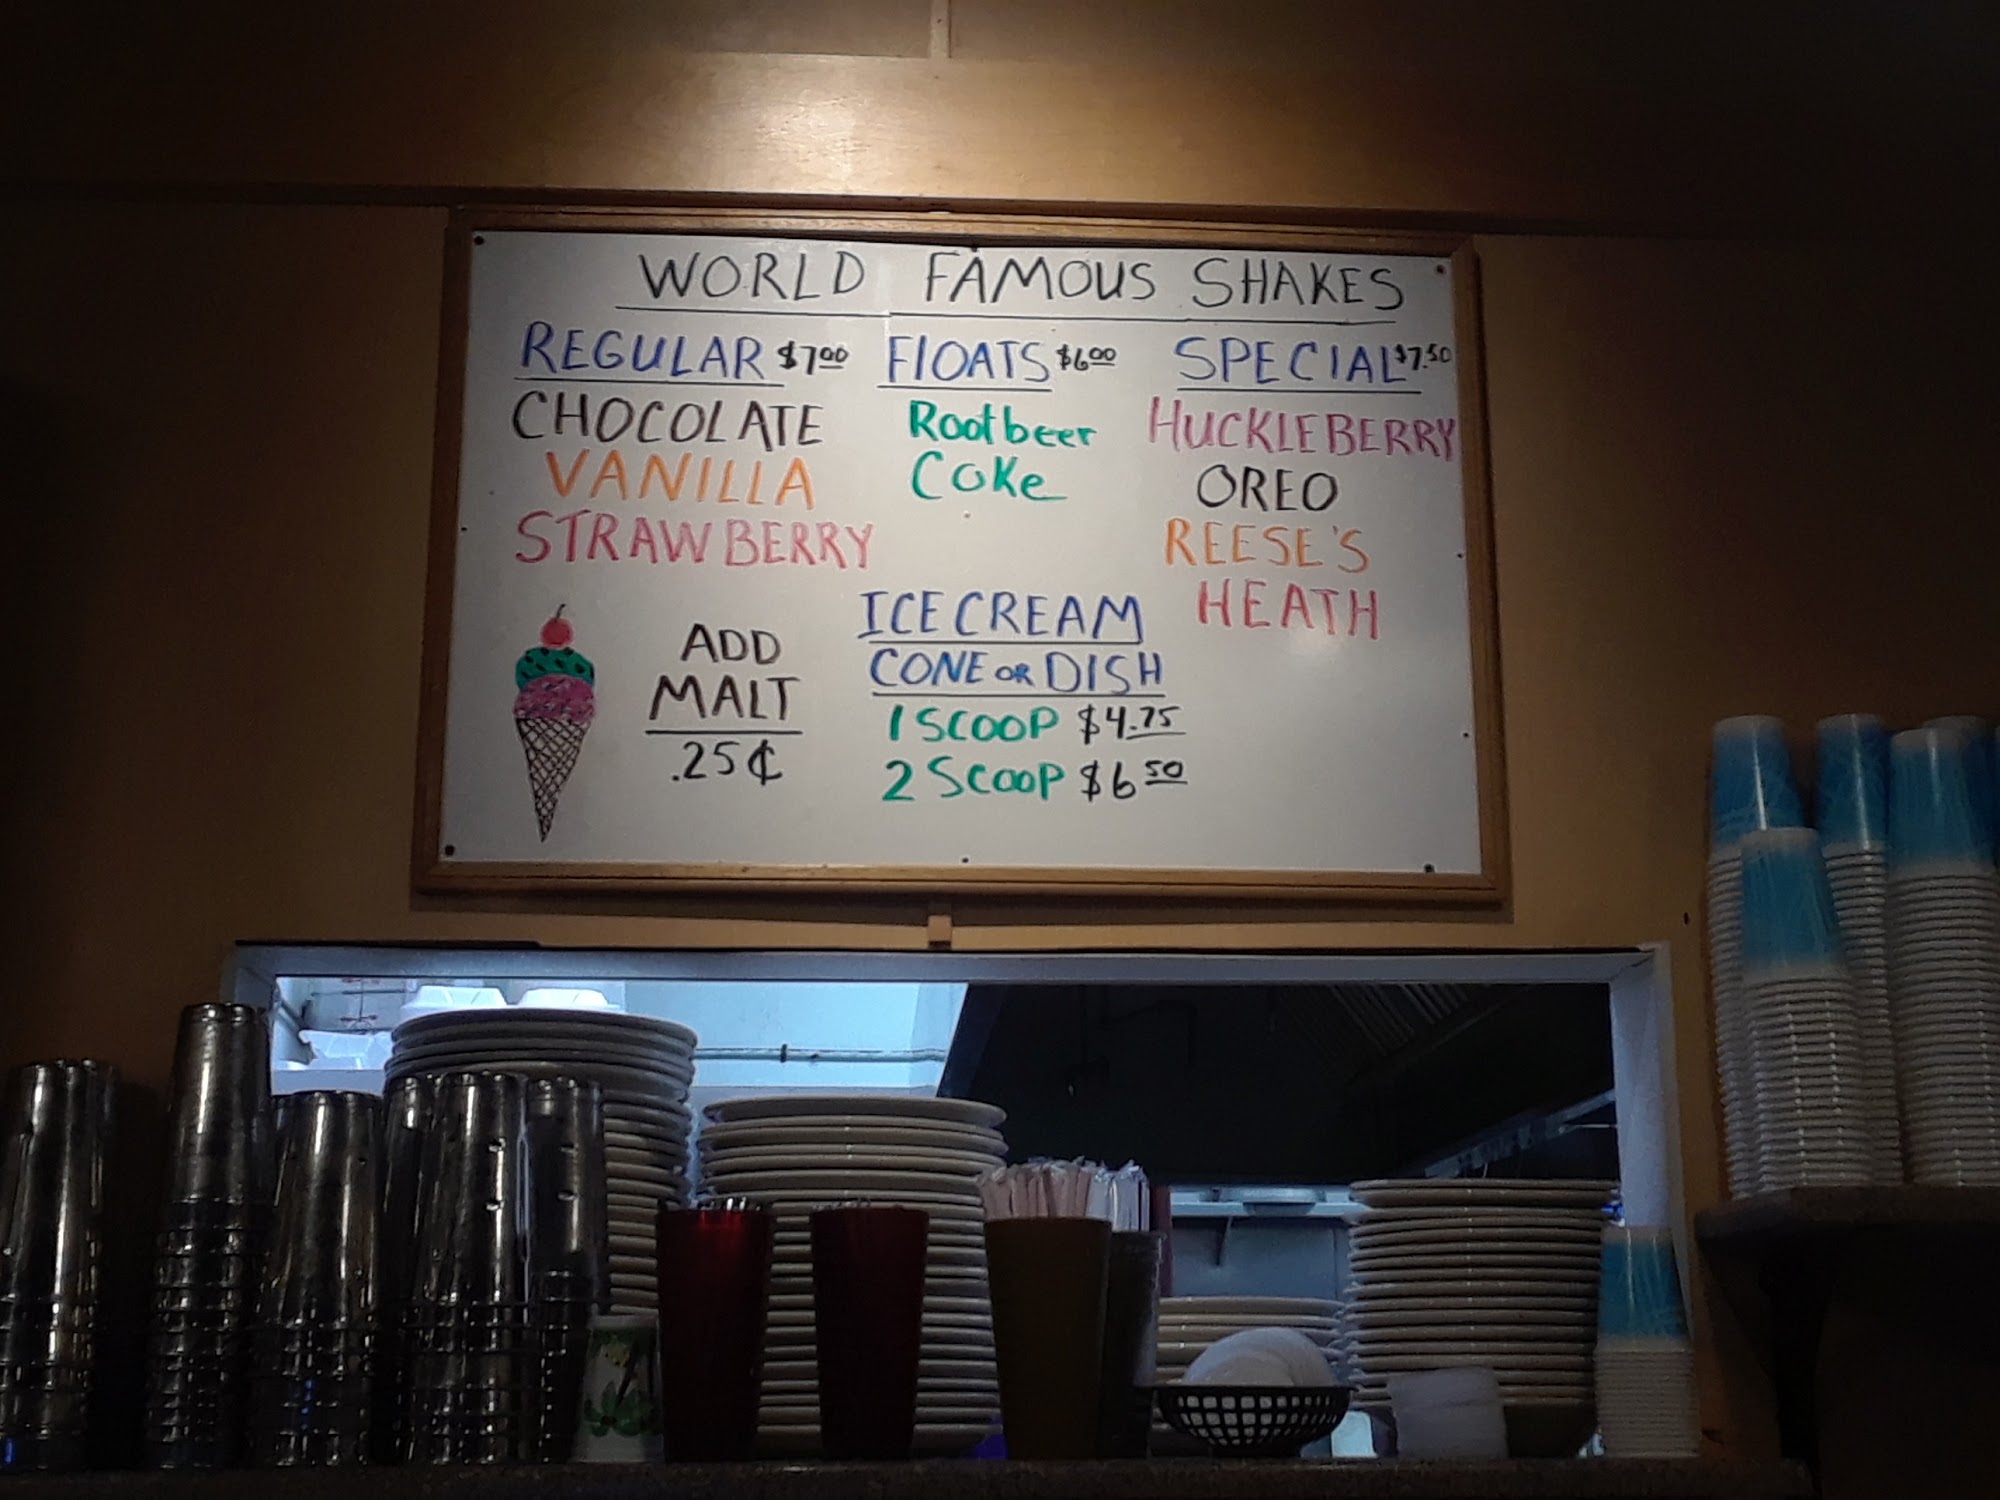 WORLD FAMOUS SHAKES
REGULAR $7.00
CHOCOLATE
VANILLA
STRAWBERRY
FLOATS $6.00
Rootbeer
Coke
SPECIAL $7.50
HUCKLEBERRY
OREO
REESE'S
HEATH
ADD
MALT
.25¢
ICE CREAM
CONE OR DISH
1 SCOOP $4.75
2 SCOOP $6.50